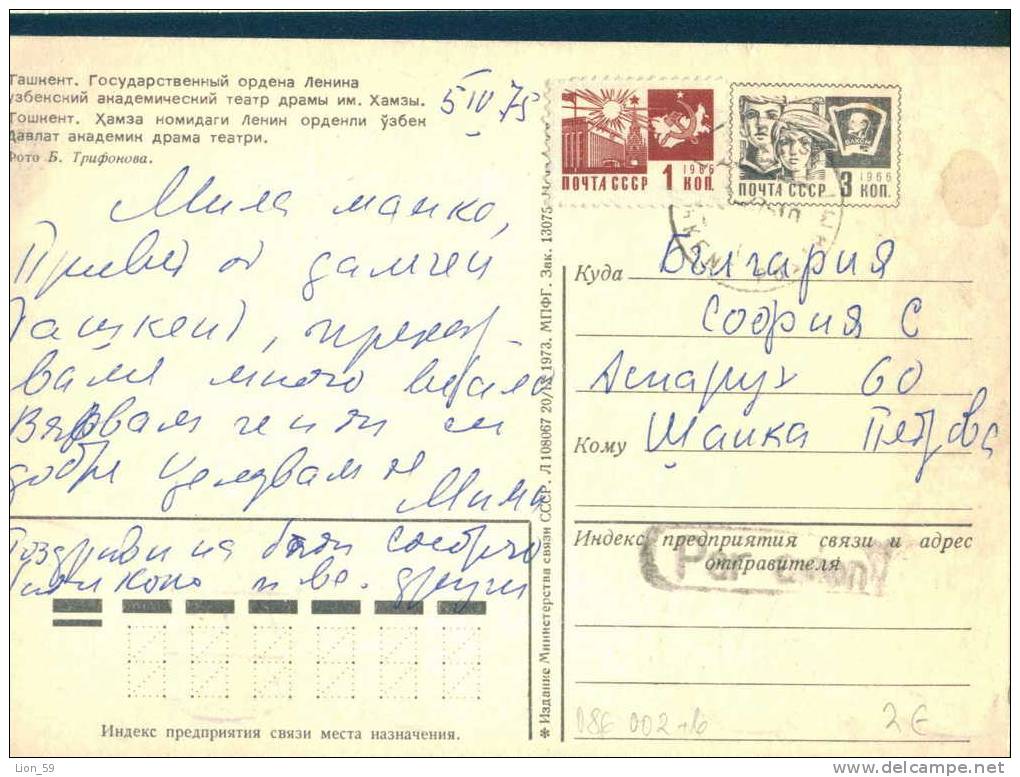 Ташкент. Государственный ордена Ленина
узбекский академический театр драмы им. Хамзы.
Тошкент. Ҳамза номидаги Ленин орденли ўзбек
давлат академик драма театри.
Фото Б. Трифонова.
5 IV 75
1966
ПОЧТА СССР 1 КОП.
ВЛКСМ
1966
ПОЧТА СССР 3 КОП.
Мила майко,
Привет от далечен
Ташкент, прекар-
ваме много весело
Вярвам че и ти си
добре Целувам те
Мими
Поздрави на
и
други
Индекс предприятия связи места назначения.
✻ Издание Министерства связи СССР. Л 108067 20/IX 1973. МПФГ. Зак. 13075
Куда България
София С
Аспарух 60
Кому Цанка Петрова
Индекс предприятия связи и адрес
отправителя
Par avion
2€
Lion_59
www.delcampe.net